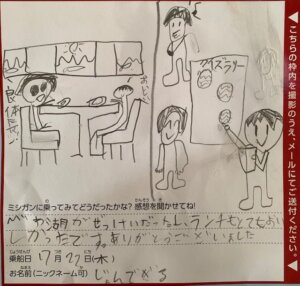 こちらの枠内を撮影のうえ、メールにてご送付ください。
クイズラリー
おいしい
ミシガンに乗ってみてどうだったかな?感想を聞かせてね!
びわ湖がぜっけいだったしランチもとてもおい
しかったです。ありがとうございました
乗船日 17月27日(木)
お名前(ニックネーム可)